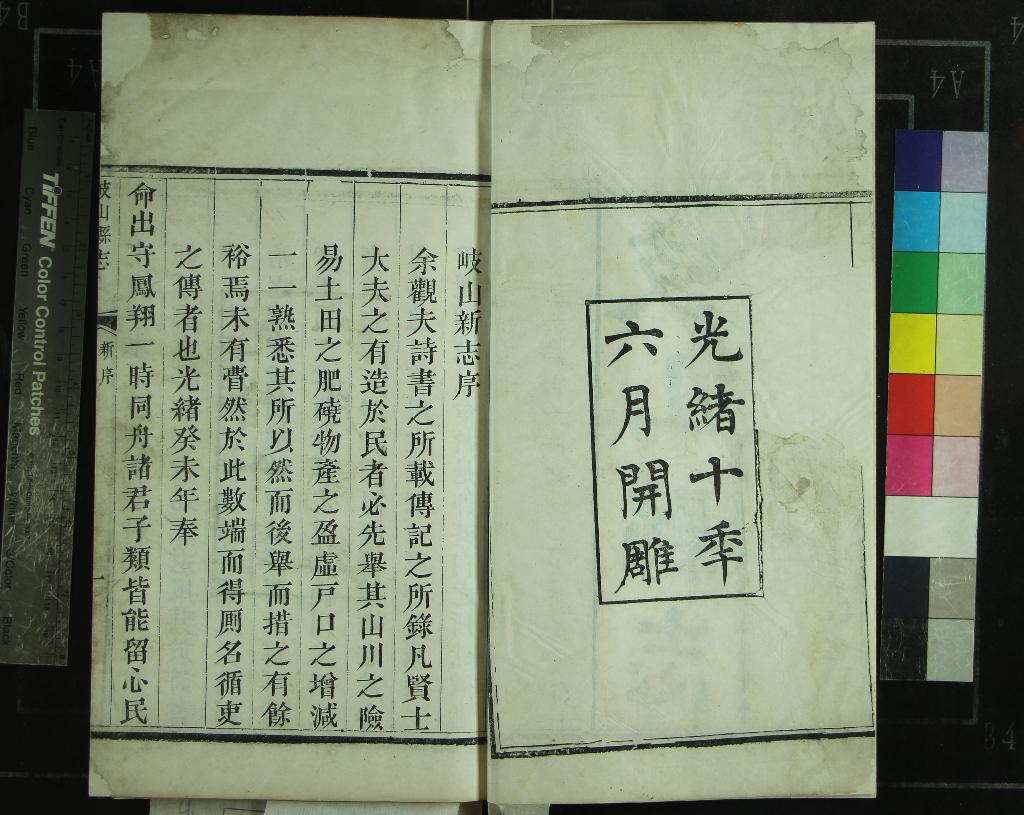 光緒十年
六月開雕
岐山新志序
余觀夫詩書之所載傳記之所錄凡賢士
大夫之有造於民者必先舉其山川之險
易土田之肥磽物產之盈虛戶口之增減
一一熟悉其所以然而後舉而措之有餘
裕焉未有瞢然於此數端而得厠名循吏
之傳者也光緒癸未年奉
命出守鳳翔一時同舟諸君子類皆能留心民
岐山縣志
新序
一
TIFFEN Color Control Patches
Blue
Cyan
Green
Yellow
Red
Magenta
White
3/Color
Black
A4
A4
B4
B4